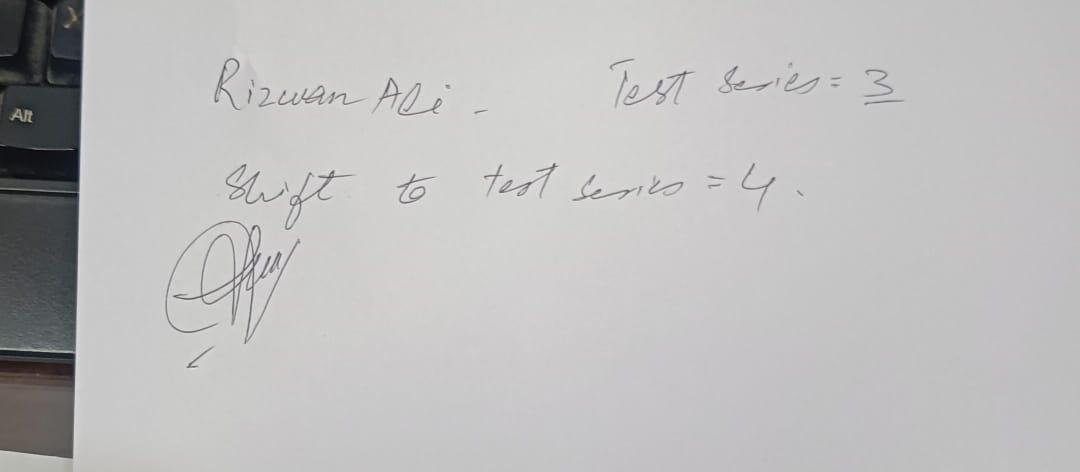 Rizwan Ali - Test Series = 3
Shift to test series = 4.
Alt